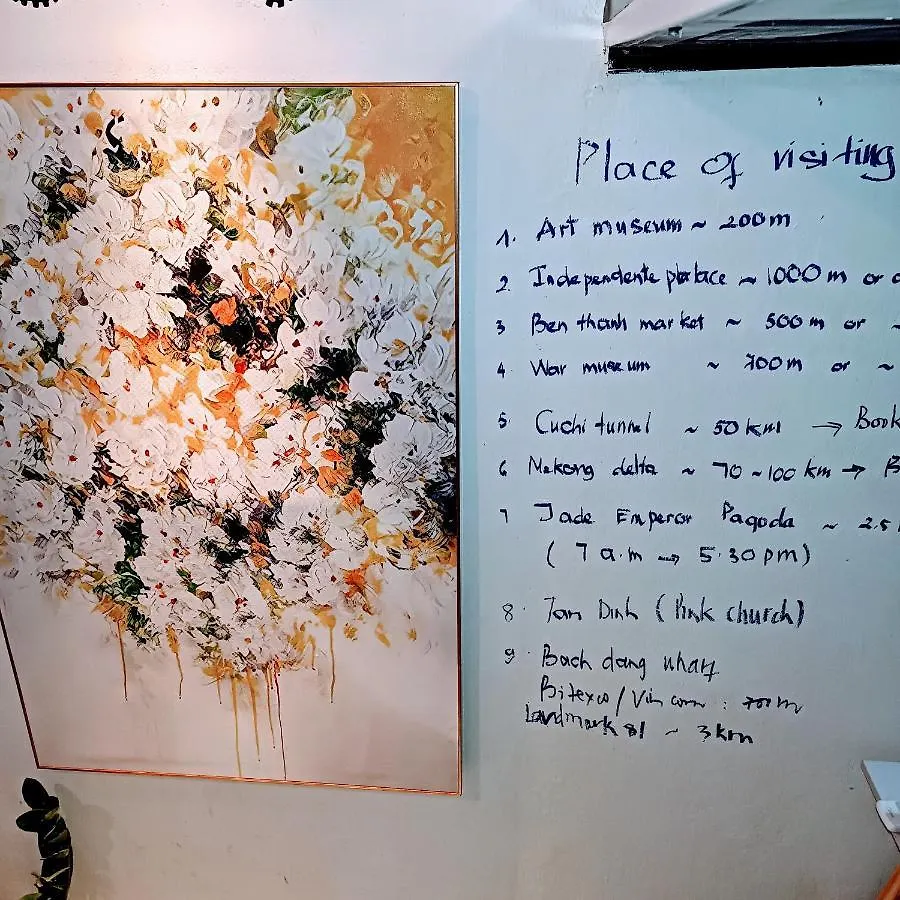 Place of visiting
1. Art museum ~ 200m
2. Independente palace ~ 1000 m or
3 Ben thanh market ~ 500 m or ~
4 War museum ~ 700m or ~
5 Cuchi tunnel ~ 50 km → Book
6 Mekong delta ~ 70 ~ 100 km → B
7 Jade Emperor Pagoda ~ 2.5
( 7 a.m → 5.30 pm)
8. Tan Dinh (Pink church)
9. Bach dang wharf
Bitexco / Vin com : 700m
Landmark 81 ~ 3km